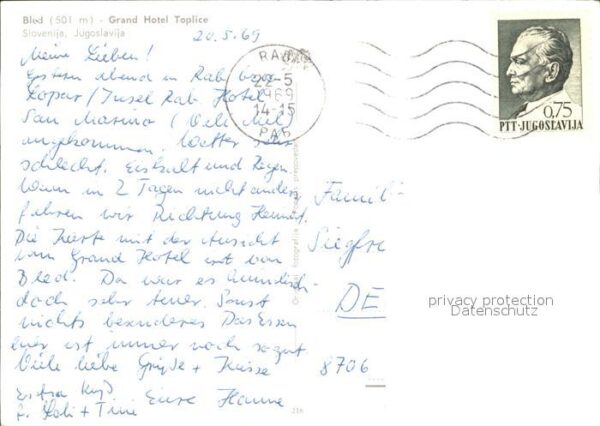 Bled (501 m) - Grand Hotel Toplice
Slovenija, Jugoslavija
20.5.69
Meine Lieben!
Gestern abend in Rab bzw.
Lopar / Insel Rab. Hotel
San Marino (Vele Mel)
angekommen. Wetter sehr
schlecht. Eiskalt und Regen.
Wenn in 2 Tagen nicht anders
fahren wir Richtung Heimat.
Die Karte mit der Ansicht
vom Grand Hotel ist von
Bled. Da war es himmlisch
doch sehr teuer. Sonst
nichts besonderes Das Essen
hier ist immer noch so gut
Viele liebe Grüße + Küsse
Extra Kuß Eure Hanne
f. + Tini
RAB
22-5
1969
14-15
РАБ
0,75
PTT-JUGOSLAVIJA
Famili
Siegfre
DE
8706
privacy protection
Datenschutz